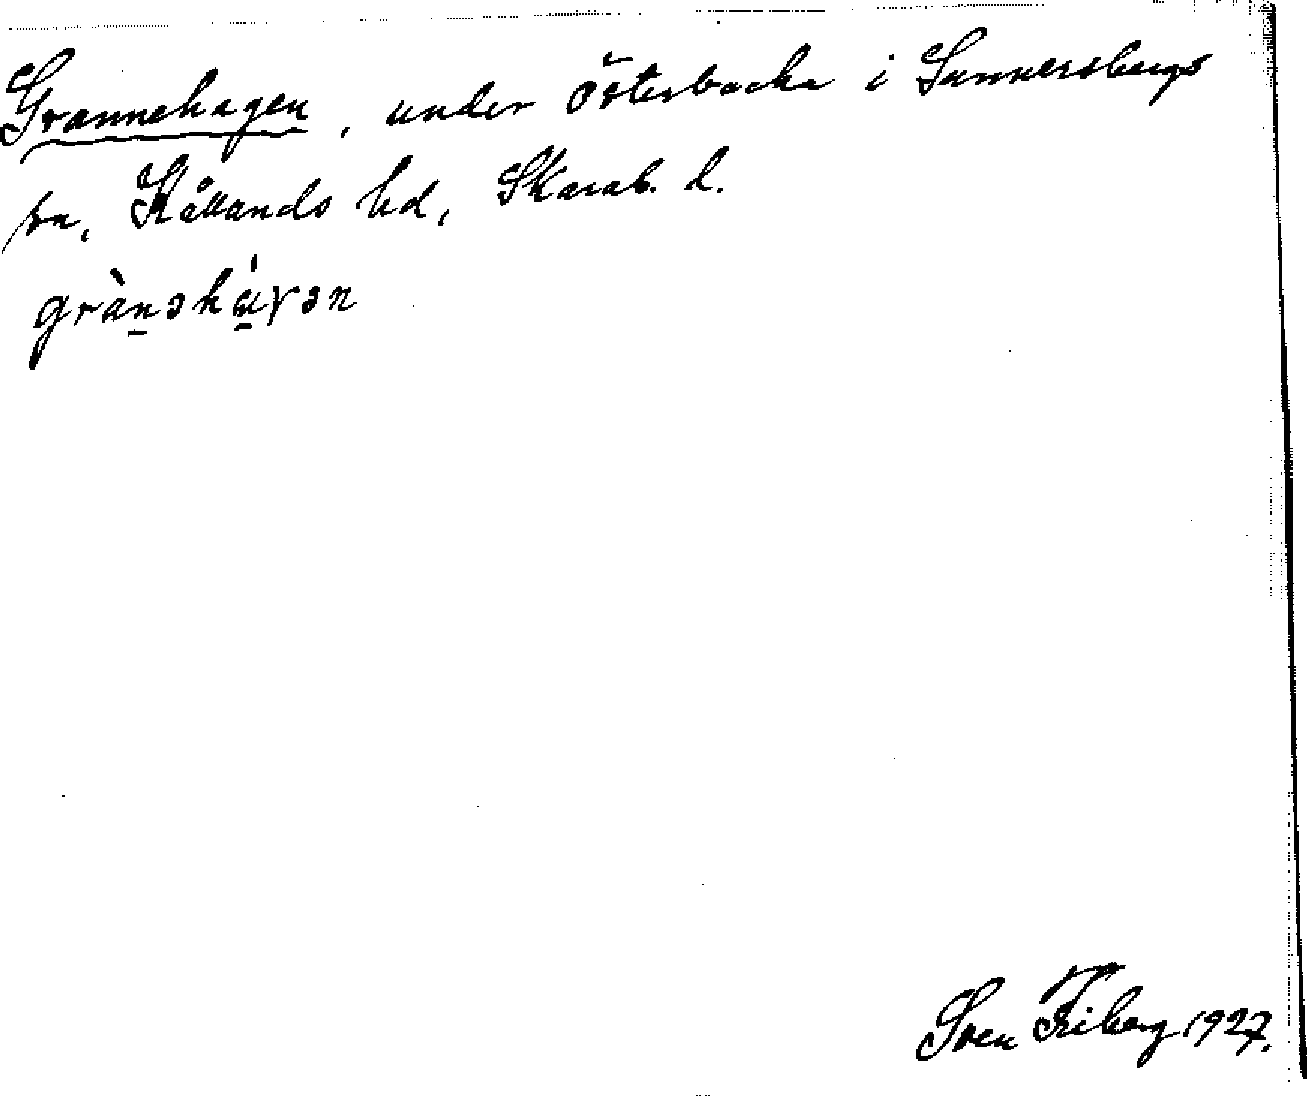 Grannehagen, under Österbacka i Sunnersbergs
sn, Kållands hd, Skarab. l.
grànəhá̱γən
Sven Friberg 1927.